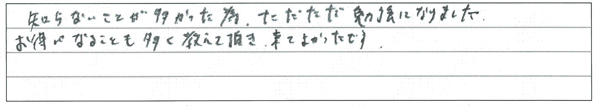 知らないことが多かった為、ただただ勉強になりました。
お得になることも多く教えて頂き、来てよかったです。